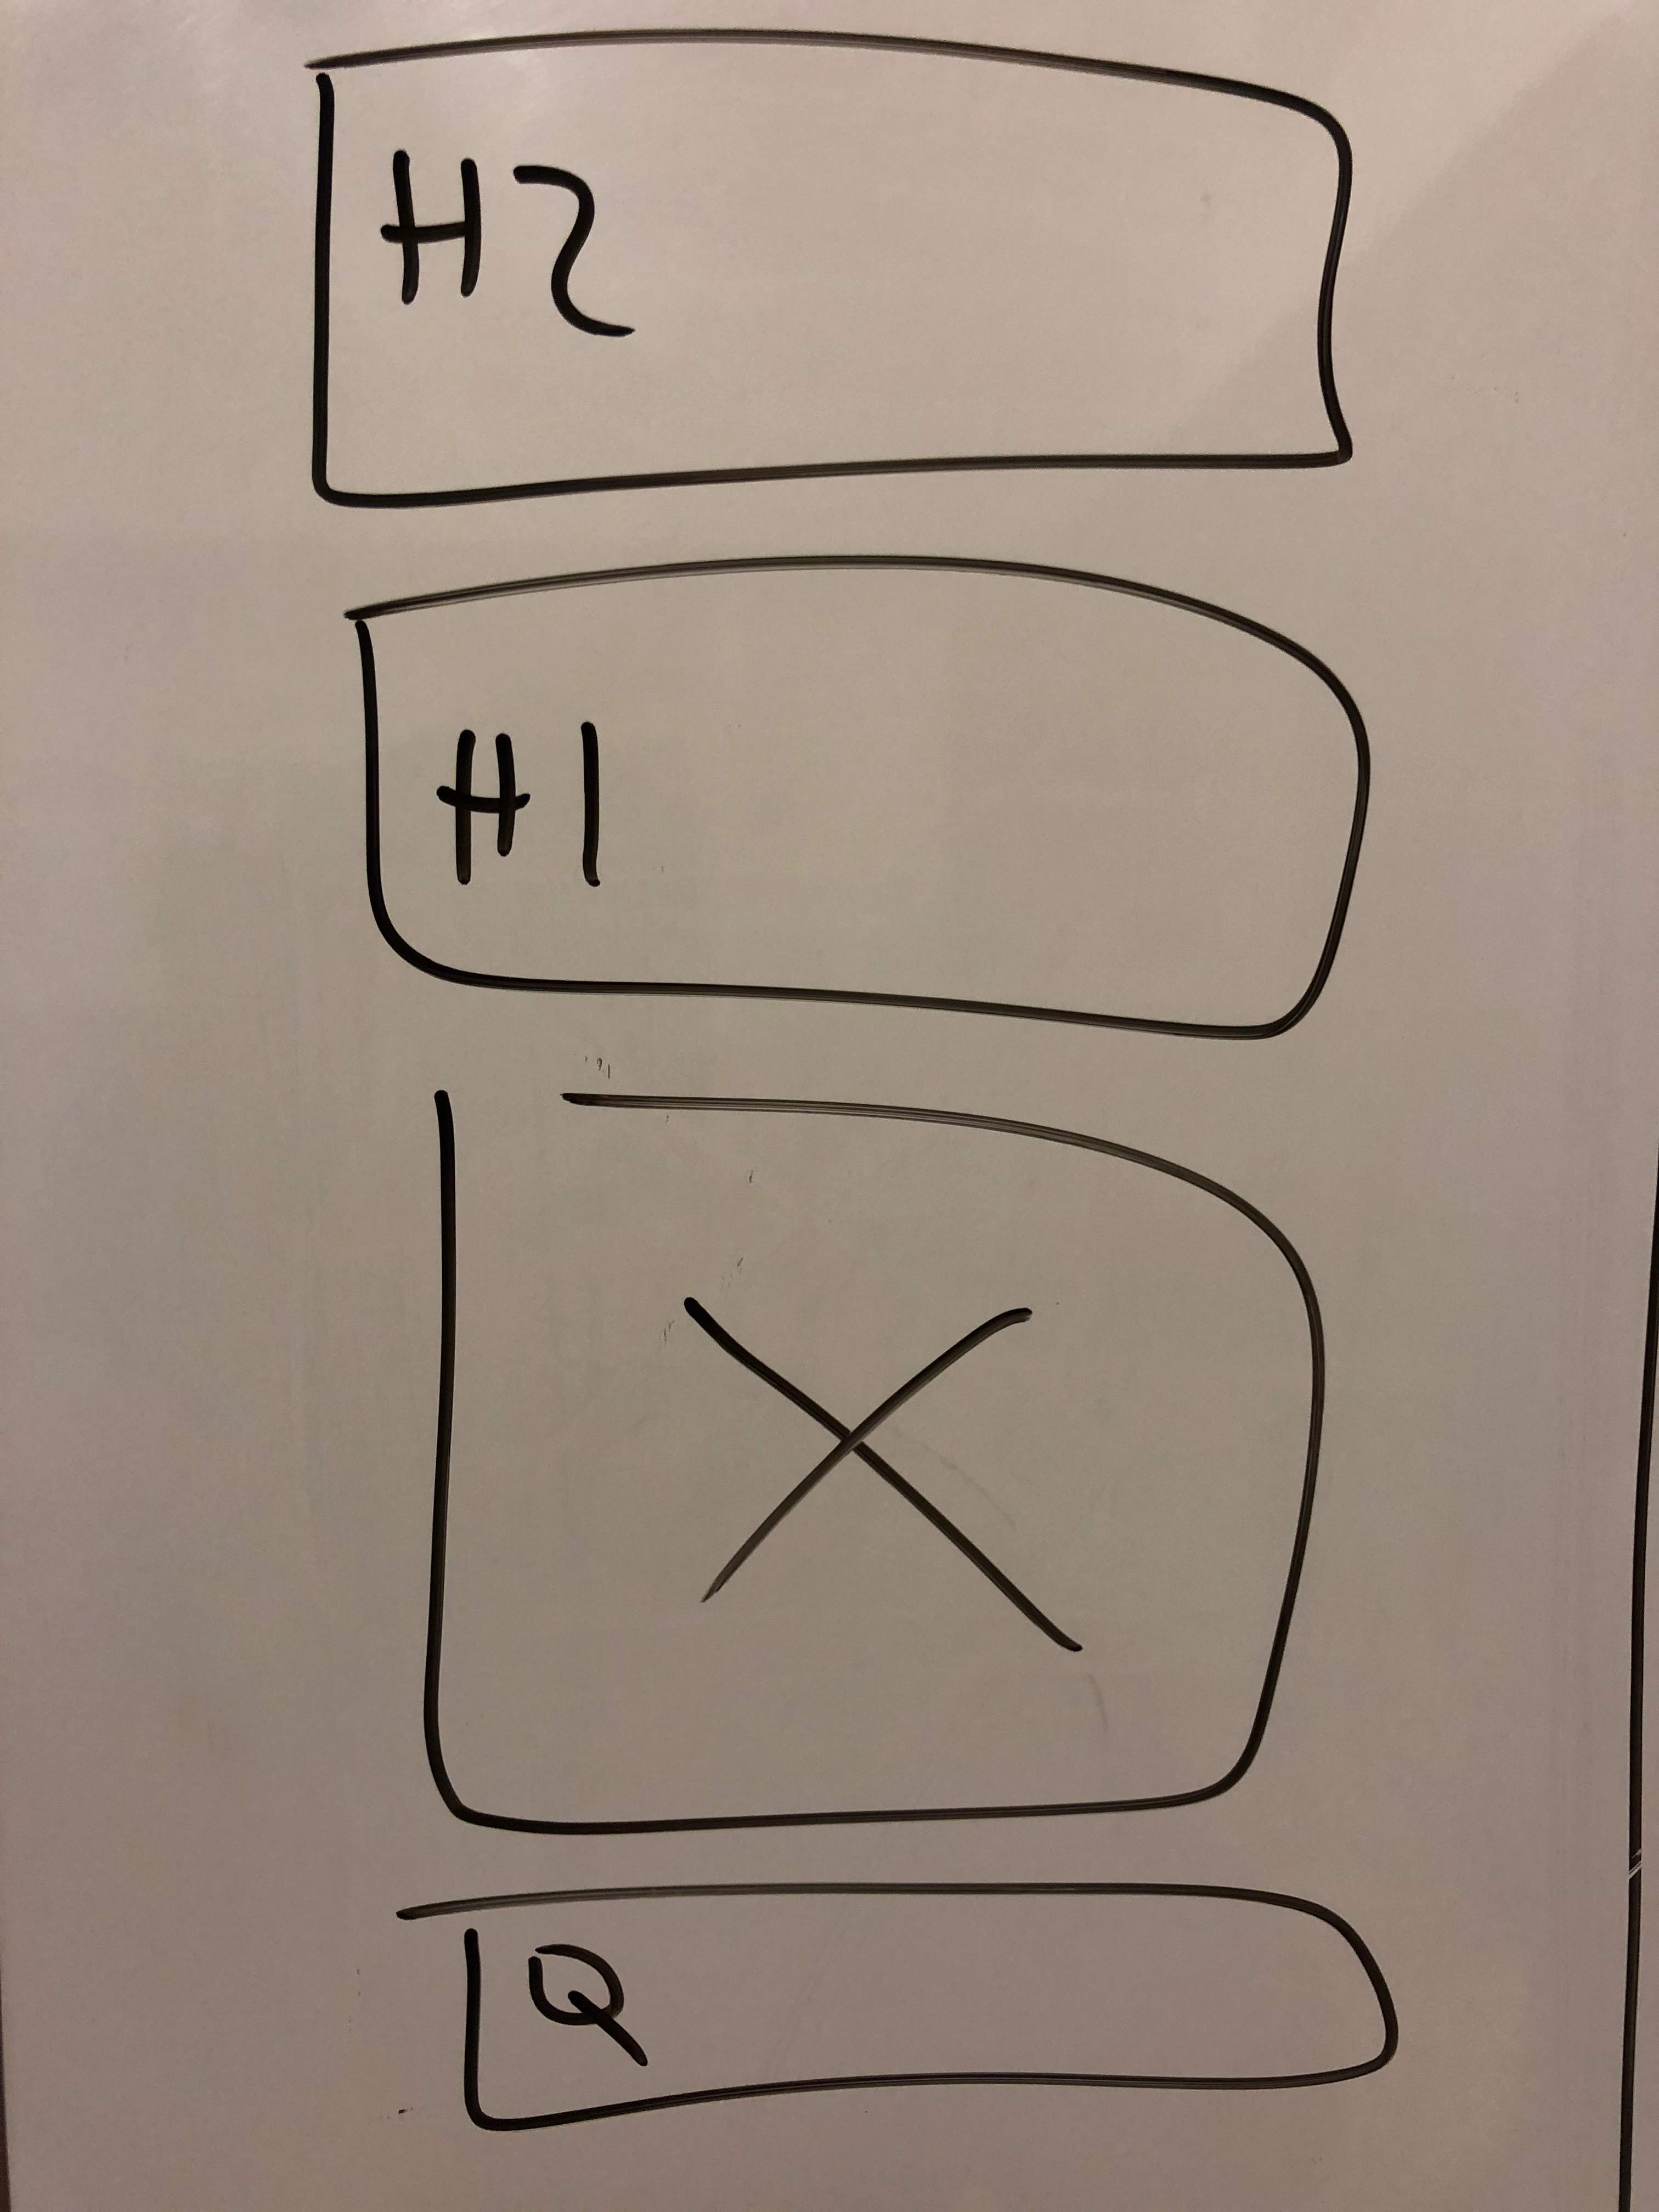 H2
H1
X
Q